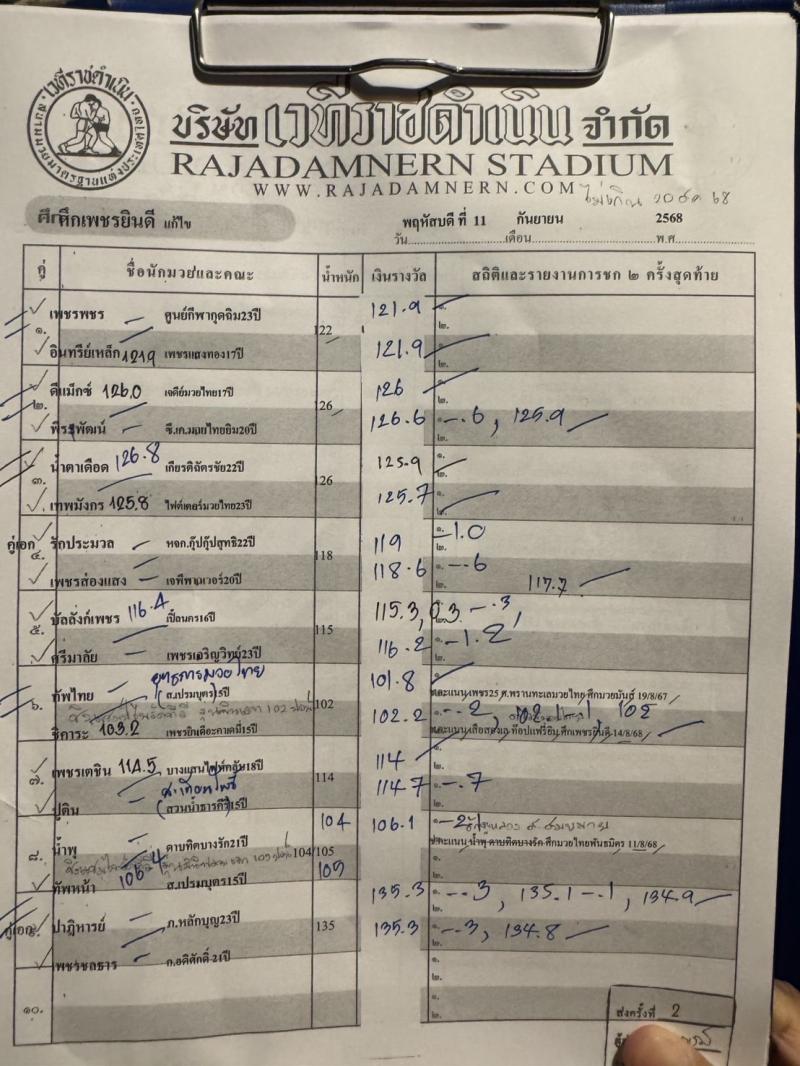 เวทีราชดำเนิน
สนามมวยมาตรฐานแห่งประเทศไทย
บริษัท เวทีราชดำเนิน จำกัด
RAJADAMNERN STADIUM
WWW.RAJADAMNERN.COM
ศึก ศึกเพชรยินดี แก้ไข พฤหัสบดี ที่ 11 กันยายน 2568
วัน เดือน พ.ศ.
คู่ ชื่อนักมวยและคณะ น้ำหนัก เงินรางวัล สถิติและรายงานการชก ๒ ครั้งสุดท้าย
เพชรพชร ศูนย์กีฬากุดฉิม23ปี 121.9 ๑.
๑. 122 ๒.
อินทรีย์เหล็ก 121.9 เพชรแสงทอง17ปี 121.9 ๑.
๒.
ดีแม็กซ์ 126.0 เจดีย์มวยไทย17ปี 126 ๑.
๒. 126 ๒.
พีรพัฒน์ ซี.เค.มวยไทยยิม20ปี 126.6 ๑. -.6, 125.9
๒.
น้ำตาเดือด 126.8 เกียรติฉัตรชัย22ปี 125.9 ๑.
๓. 126 ๒.
เทพมังกร 125.8 ไฟต์เตอร์มวยไทย23ปี 125.7 ๑.
๒.
คู่เอก รักประมวล หจก.กุ๊ปกุ๊ปสุทธิ22ปี 119 ๑. -1.0
๔. 118 ๒.
เพชรส่องแสง เจพีพาวเวอร์20ปี 118.6 ๑. -.6
๒. 117.7
บัลลังก์เพชร 116.4 เปี๊ยนคร16ปี 115.3, 0.3 -.3
๕. 115
ศรีมาลัย เพชรเจริญวิทย์23ปี 116.2 -1.2
ยุทธการมวยไทย
ทัพไทย (ส.เปรมบุตร)15ปี 101.8 ๑.
๖. 102 ชนะคะแนน เพชร25 ศ.พรานทะเลมวยไทย ศึกมวยมันธ์ 19/8/67
ชิการะ 103.2 เพชรยินดีอะคาเดมี่15ปี 102.2 -.2, 102.1 102
ชนะคะแนน เสือสมิง ท๊อปแฟรี่ยิม ศึกเพชรยินดี 14/8/68
เพชรเตชิน 114.5 บางแสนไฟท์คลับ18ปี 114 ๑.
๗. 114 ๒.
ปูติน (สวนน้ำธารคีรี)15ปี 114.7 ๑. -.7
๒.
น้ำพุ ดาบทิตบางรัก21ปี 104 106.1
๘. 104/105 ชนะคะแนน น้ำพุ ดาบทิตบางรัก ศึกมวยไทยพันธมิตร 11/8/68
ทัพหน้า 106.4 ส.เปรมบุตร15ปี 105 ๑.
๒.
คู่เอก ปาฏิหารย์ ภ.หลักบุญ23ปี 135.3 ๑. -.3, 135.1 -.1, 134.9
๙. 135 ๒.
เพชรชลธาร ก.อดิศักดิ์ 21ปี 135.3 ๑. -.3, 134.8
๒.
๑๐. ๑.
๒.
๑.
๒.
ส่งครั้งที่ 2